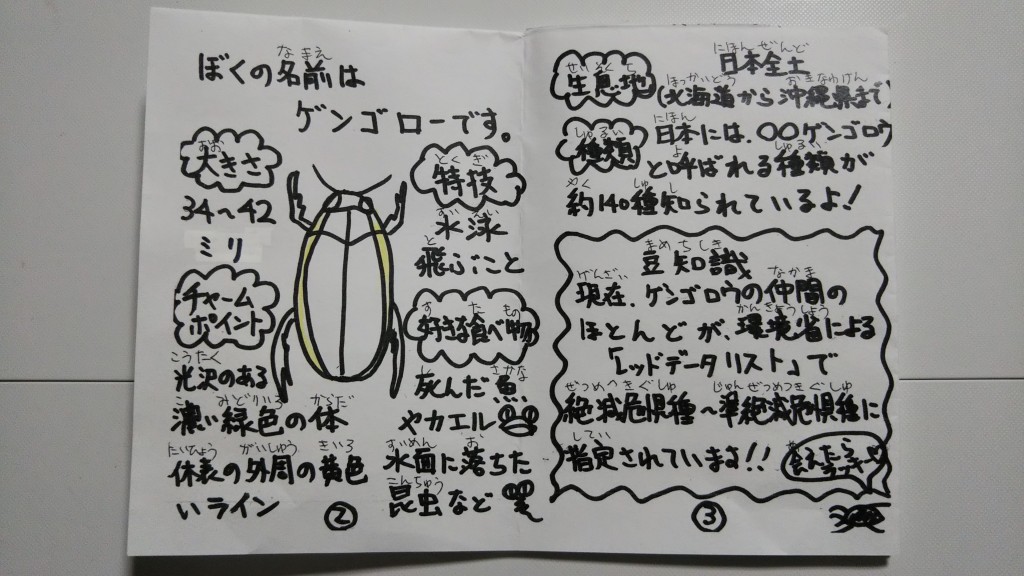 ぼくの名前は
ゲンゴローです。
大きさ
34〜42
ミリ
チャーム
ポイント
光沢のある
濃い緑色の体
体表の外周の黄色
いライン
特技
水泳
飛ぶこと
好きな食べ物
死んだ魚
やカエル
水面に落ちた
昆虫など
②
生息地
日本全土
(北海道から沖縄県まで)
種類
日本には、〇〇ゲンゴロウ
と呼ばれる種類が
約140種知られているよ!
豆知識
現在、ゲンゴロウの仲間の
ほとんどが、環境省による
「レッドデータリスト」で
絶滅危惧種〜準絶滅危惧種に
指定されています!!
会えたら
ラッキー
③